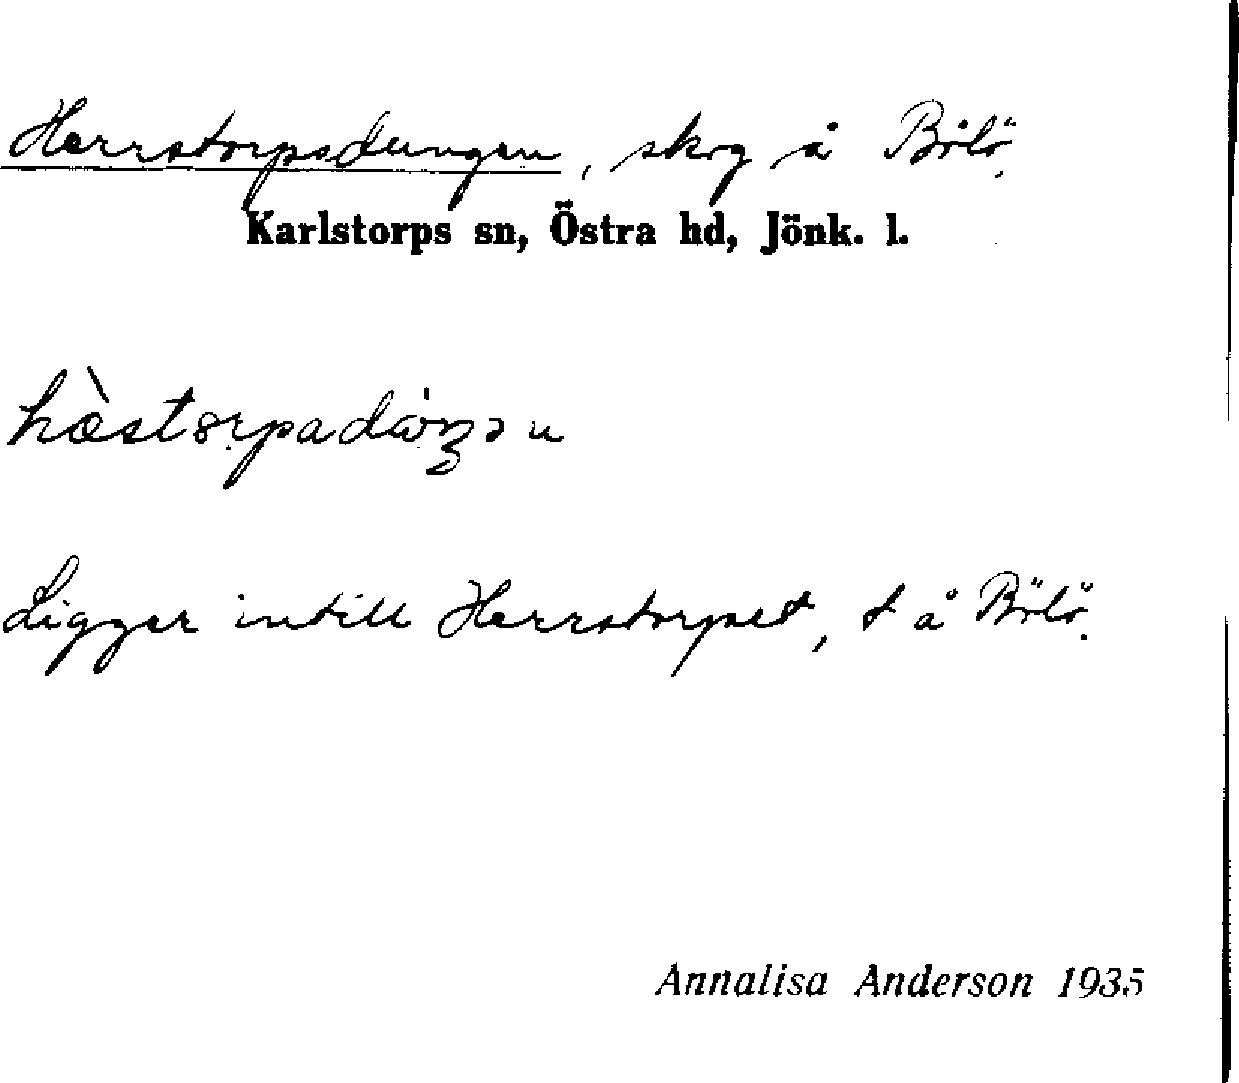 Herrstorpsdungen, skog å Bölö.
Karlstorps sn, Östra hd, Jönk. l.
hæ̀storpadúŋən
Ligger intill Herrstorpet, t å Bölö.
Annalisa Anderson 1935